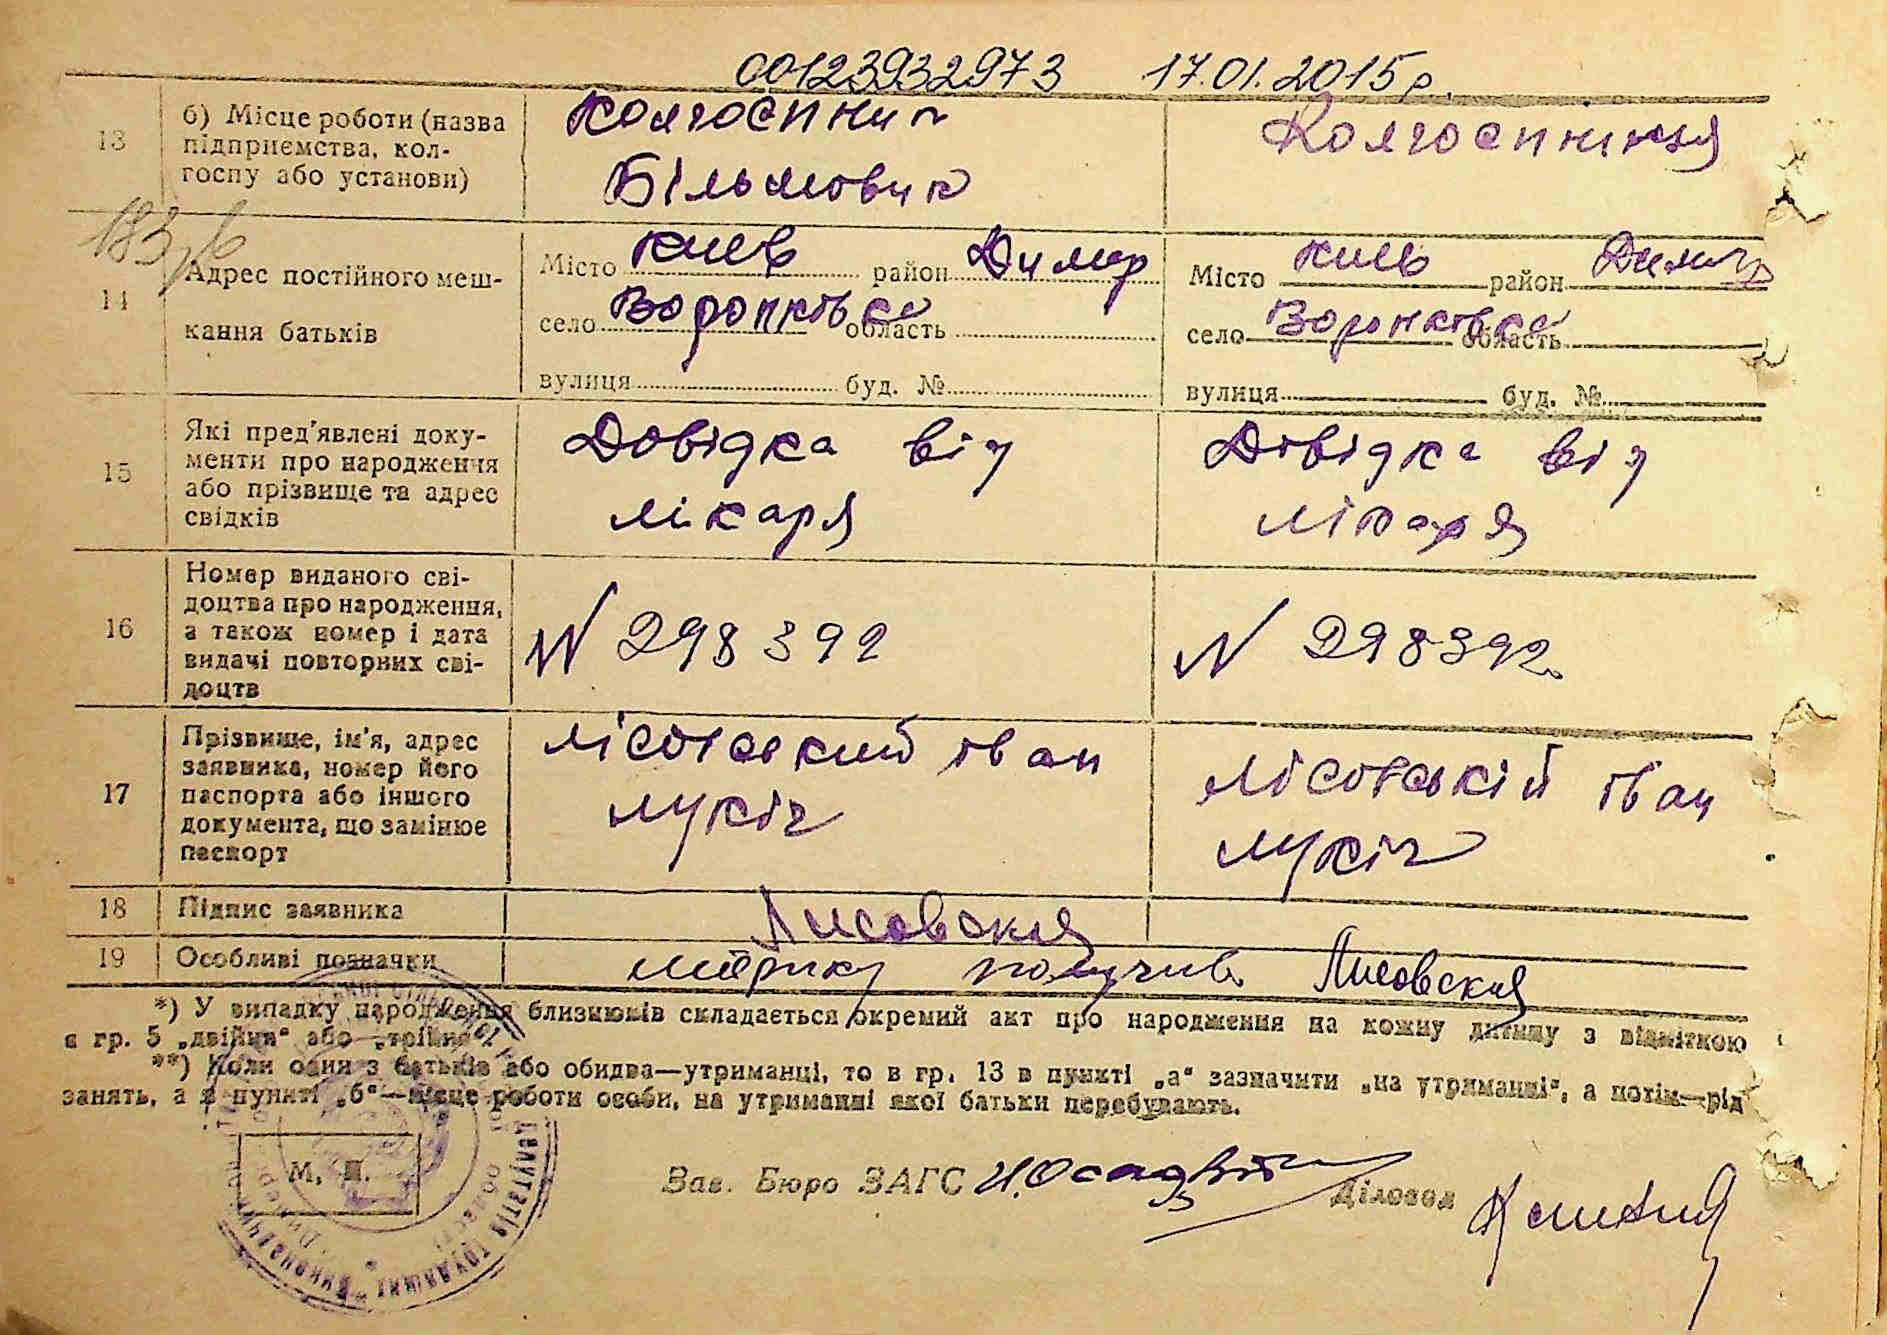 00123932973 17.01.2015р.
13 б) Місце роботи (назва підприємства, колгоспу або установи)
Колгоспник
Більшовик
Колгоспниця
183
14 Адрес постійного меш-
кання батьків
Місто Киев район Димер
село область
вулиця буд. №
Місто Киев район Димер
село область
вулиця буд. №
15 Які пред'явлені доку-
менти про народження
або прізвище та адрес
свідків
Довідка від
лікаря
Довідка від
лікаря
16 Номер виданого сві-
доцтва про народження,
а також номер і дата
видачі повторних сві-
доцтв
N 298392
N 298392
17 Прізвище, ім'я, адрес
заявника, номер його
паспорта або іншого
документа, що замінює
паспорт
Лісовский Іван
Лукіч
Лісовській Іван
Лукіч
18 Підпис заявника
Лисовский
19 Особливі позначки
метрику получив Лисовский
*) У випадку народження близнюків складається окремий акт про народження на кожну дитину з відміткою
в гр. 5 „двійня“ або „трійня“
**) Коли один з батьків або обидва—утриманці, то в гр. 13 в пункті „а“ зазначити „на утриманні“, а потім—рід
занять, а в пункті „б“—місце роботи особи, на утриманні якої батьки перебувають.
М. П.
Зав. Бюро ЗАГС
Діловод
депутатів трудящих